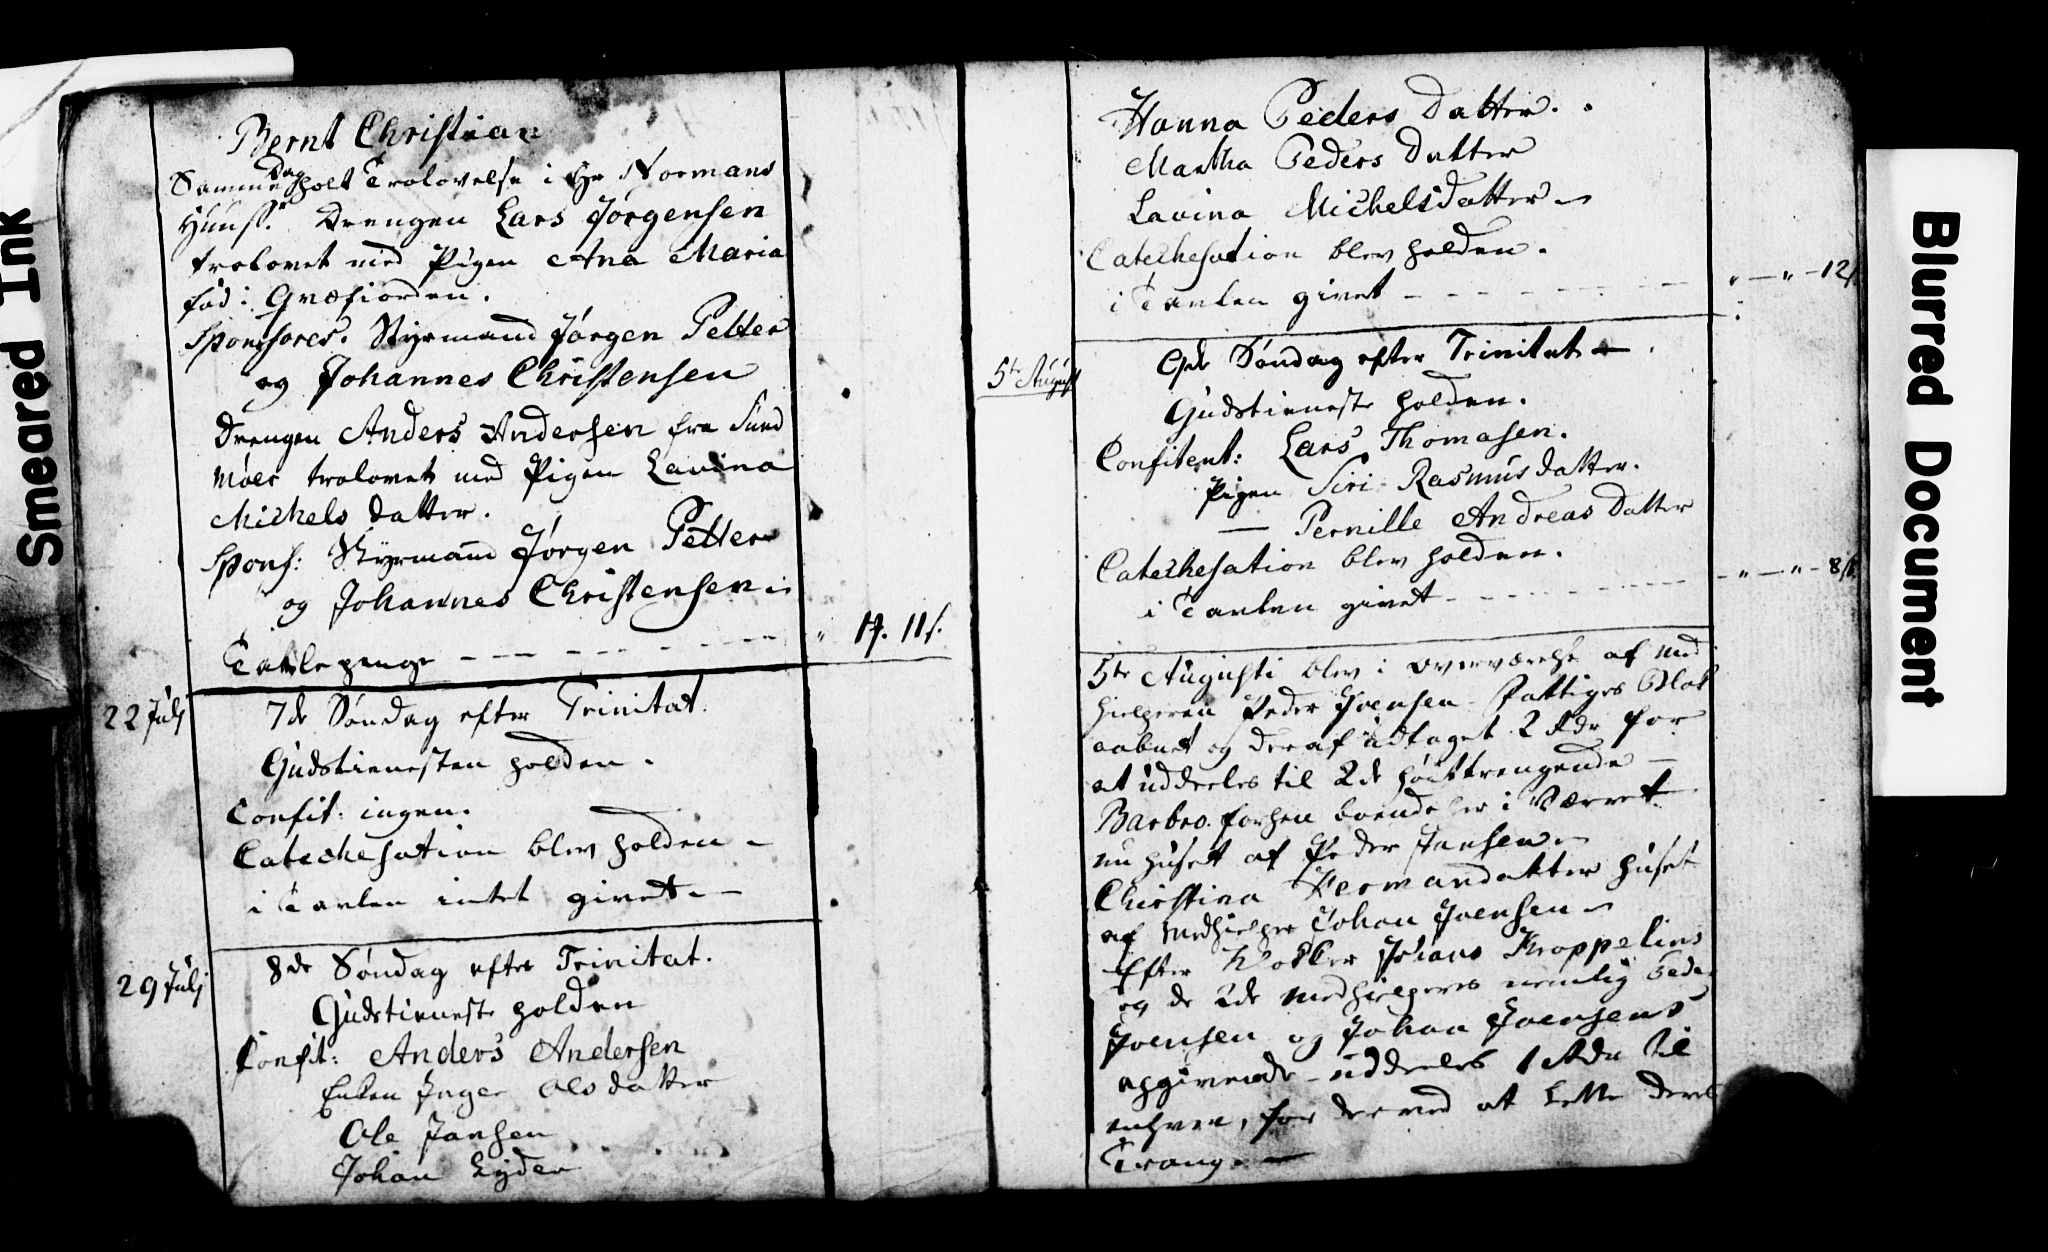 Smeared Ink
Bernt Christian
Samme Dag holt Trolovelse i Hr Normans
Huus: Drengen Lars Jørgensen
trolovet med Pigen Ana Maria
fød i Græfiorden.
Sponsores. Styrmand Jørgen Petter
og Johannes Christensen
Drengen Anders Andersen fra Sund
møer trolovet med Pigen Lavina
Michels datter.
Spons: Styrmand Jørgen Petter
og Johannes Christensen
Tavlepenge - - - 11 s.
22 Julj
7de Søndag efter Trinitat.
Gudstienesten holden.
Confit: ingen.
Catechesation blev holden -
i Tavlen intet givet. -
29 Julj
8de Søndag efter Trinitat.
Gudstieneste holden
Confit: Anders Andersen
Enken Inger Olsdatter
Ole Jansen
Johan
Hanna Peders Datter.
Martha Peders Datter
Lavina Michelsdatter
Catechesation blev holden.
i Tavlen givet - - - " - " - 12 s
5te August
9de Søndag efter Trinitat -
Gudstieneste holden.
Confitent: Lars Thomasen.
Pigen Siri Rasmusdatter.
— Pernille Andreas Datter
Catechesation blev holden.
i Tavlen givet - - - " - " - 8 s
5te Augusti blev i overværelse af Med
hielperen Peder Joensen Fattiges Blok
aabnet og deraf udtaget 2 Rdr for
at uddeeles til 2de høittrengende -
Barbro forhen boende her i Værret
nu huset af Peder Jansen
Christina Hermandatter huset
af Medhielper Johan Joensen
Efter Klokker Johans Kroppelins
og de 2de Medhielperes nemlig Peder
Joensen og Johan Joensens
opgivende uddeeles 1 Rdr til
enhver, for derved at lette deres
Trang. —
Blurred Document